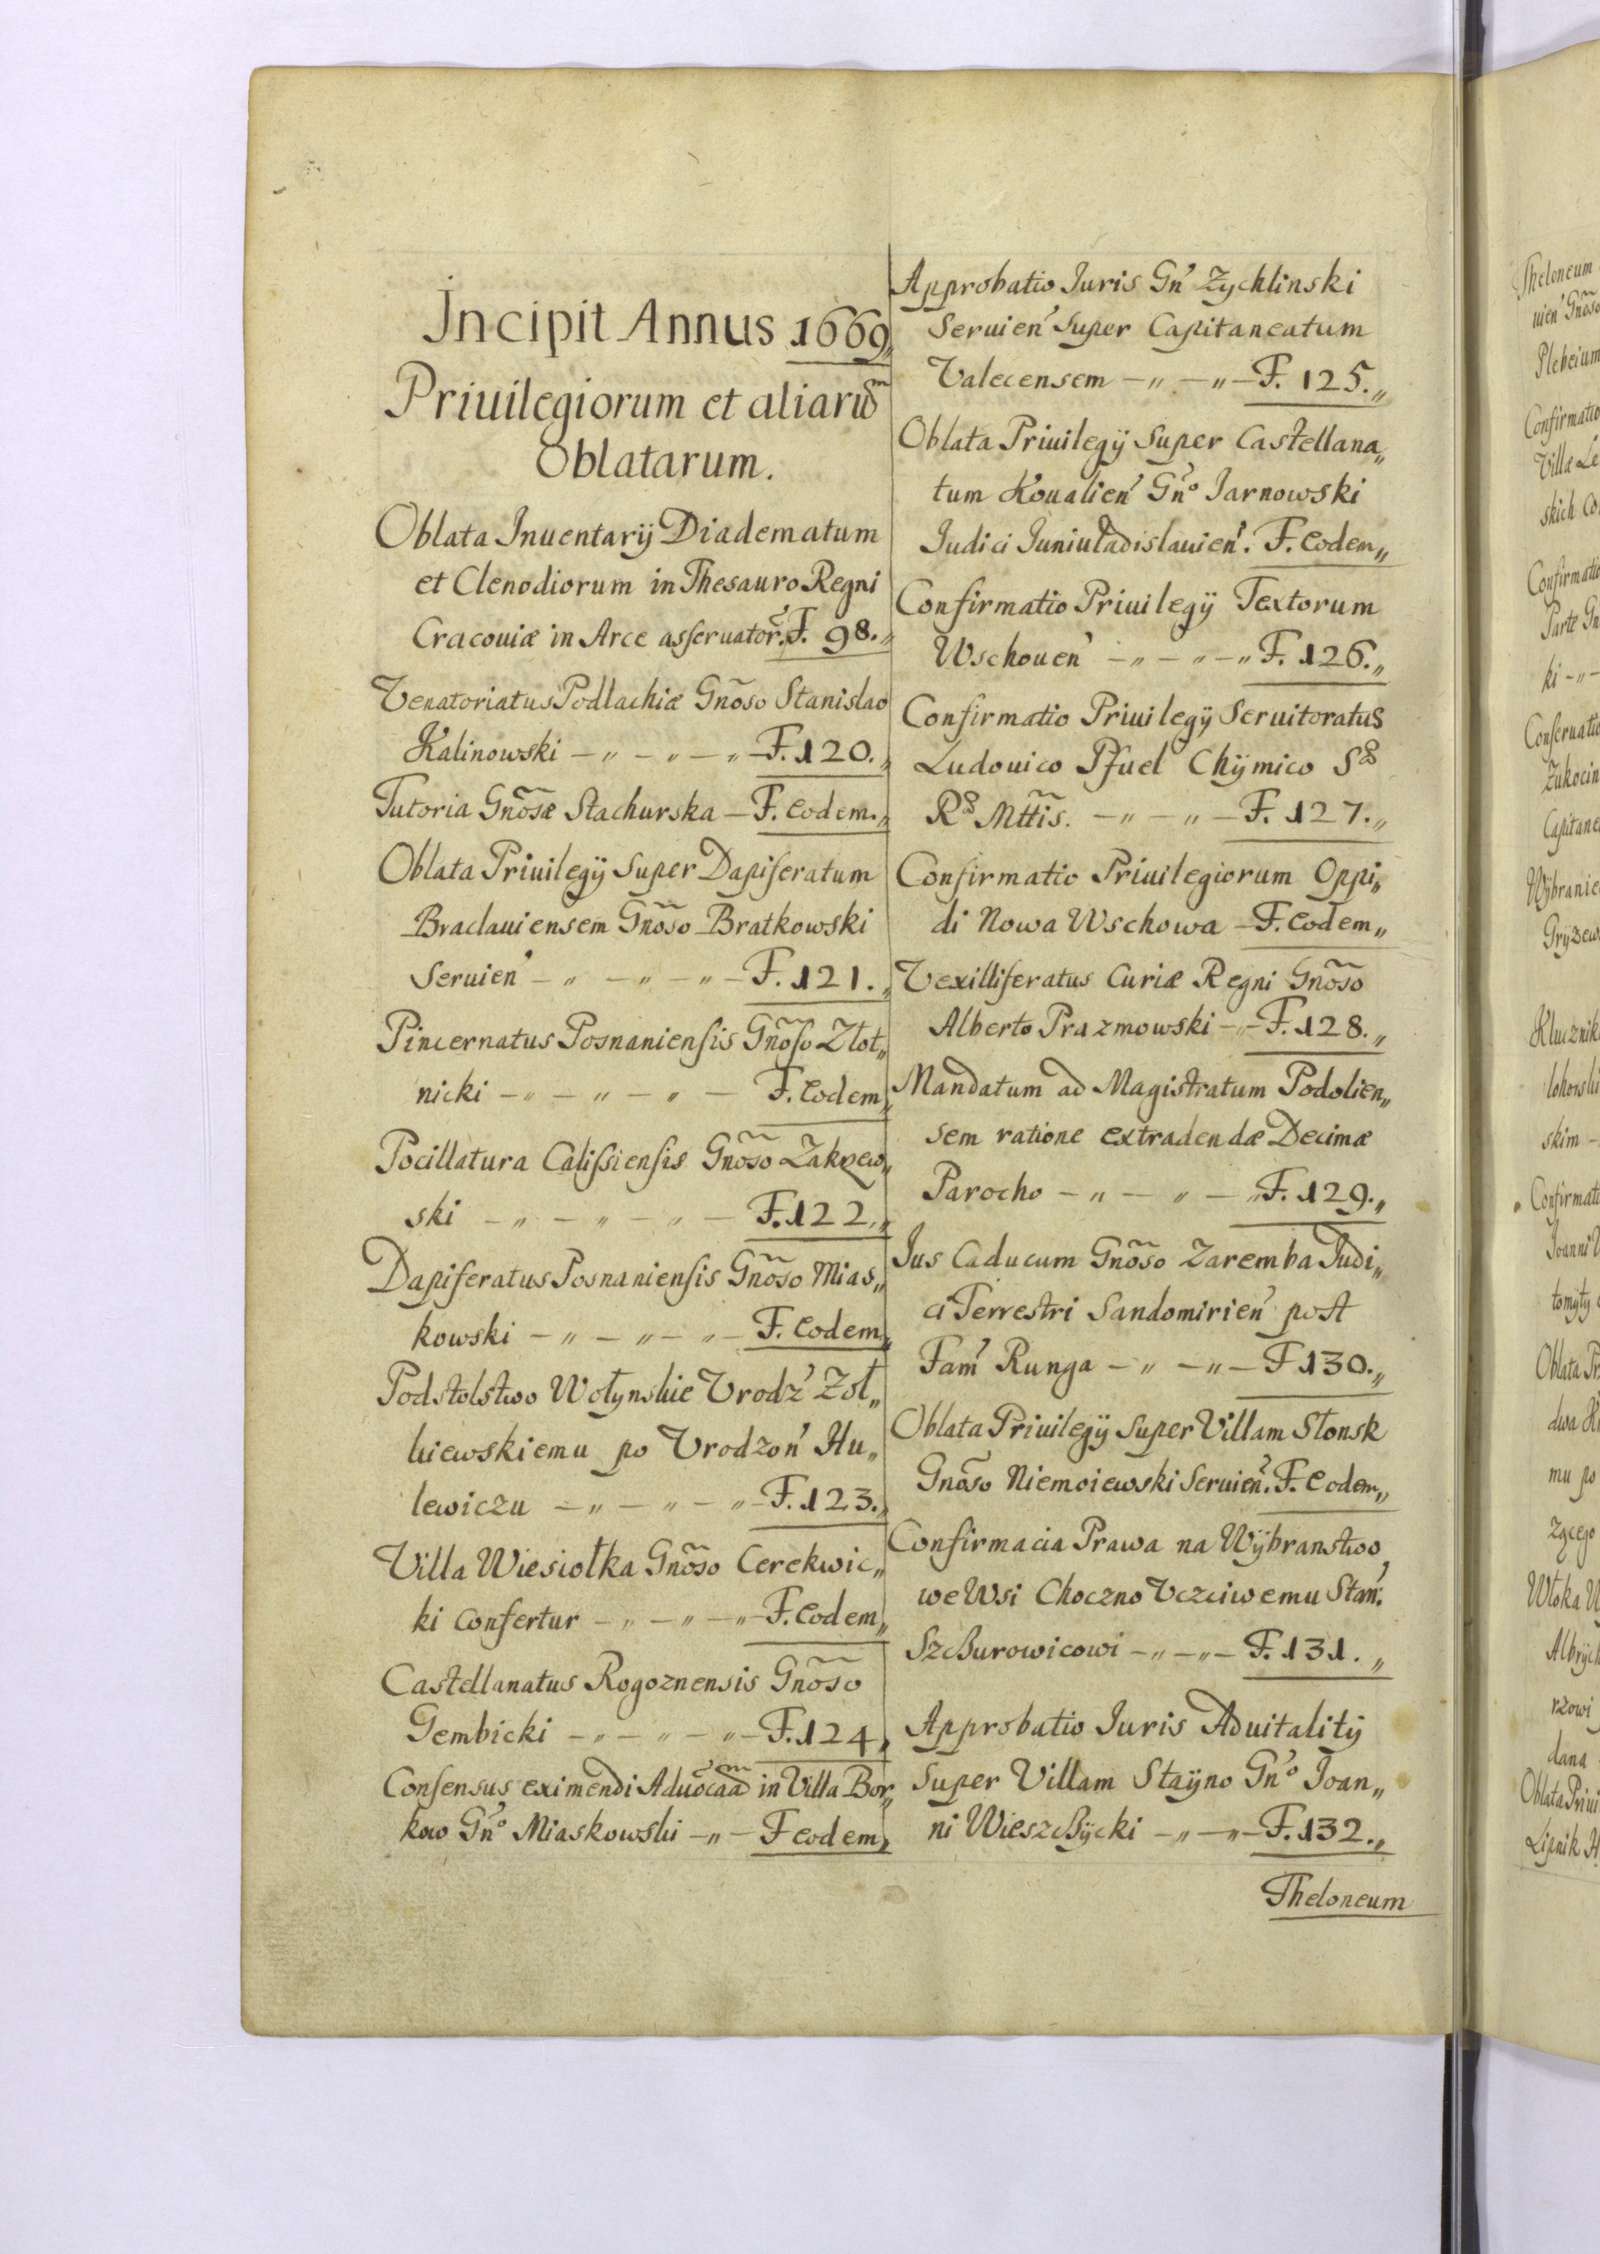 Incipit Annus 1669,,
Priuilegiorum et aliarũm
Oblatarum.
Oblata Inuentarÿ Diadematum
et Clenodiorum in Thesauro Regni
Cracouiæ in Arce asseruator̃. F. 98.,,
Venatoriatus Podlachiæ Gnõso Stanislao
Kalinowski —,,—,,—,,— F. 120.,,
Tutoria Gnõsæ Stachurska — F. Eodem.,,
Oblata Priuilegÿ super Dapiferatum
Braclauiensem Gnõso Bratkowski
Seruien' —,,—,,—,,— F. 121.,,
Pincernatus Posnaniensis Gnõso Złot,,
nicki —,,—,,—,,— F. Eodem,,
Pocillatura Calissiensis Gnõso Zakrzew,,
ski —,,—,,—,,— F. 122,,
Dapiferatus Posnaniensis Gnõso Mias,,
kowski —,,—,,—,,— F. Eodem,,
Podstolstwo Wołynskie Vrodz' Zoł,,
kiewskiemu po Vrodzon' Hu,,
lewiczu —,,—,,—,,— F. 123.,,
Villa Wiesiołka Gnõso Cerekwic,,
ki confertur —,,—,,—,, F. Eodem,,
Castellanatus Rogoznensis Gnõso
Gembicki —,,—,,—,,— F. 124,,
Consensus eximendi Aduocaãm in Villa Bor,,
kow Gn'o Miaskowski —,,— F Eodem,,
Approbatio Iuris Gn' Zychlinski
Seruien' super Capitaneatum
Valecensem —,,—,,— F. 125.,,
Oblata Priuilegÿ super Castellana,,
tum Koualien' Gn'o Jarnowski
Judici Juniuładislauien'. F. Eodem,,
Confirmatio Priuilegÿ Textorum
Wschouen' —,,—,,—,, F. 126.,,
Confirmatio Priuilegÿ Seruitoratus
Ludouico Pfuel Chÿmico S
R Mttis. —,,—,,— F. 127.,,
Confirmatio Priuilegiorum Oppi,,
di Nowa Wschowa — F. Eodem,,
Vexilliferatus Curiæ Regni Gnõso
Alberto Prazmowski —,,— F. 128.,,
Mandatum ad Magistratum Podolien,,
sem ratione extradendæ Decimæ
Parocho —,,—,,—,, F. 129.,,
Jus Caducum Gnõso Zaremba Judi,,
ci Terrestri Sandomirien' post
Fam' Runga —,,—,,— F 130.,,
Oblata Priuilegÿ super Villam Słonsk
Gnõso Niemoiewski Seruien'. F. Eodem,,
Confirmacia Prawa na Wÿbranstwo
we Wsi Choczno Vczciwemu Stan'.
Szczurowicowi —,,—,,— F. 131.,,
Approbatio Juris Aduitalitÿ
super Villam Staÿno Gn'o Joan,,
ni Wieszczÿcki —,,—,,— F. 132.,,
Theloneum
Theloneum
uien' Gnõso
Confirmatio
skich
Confirmatio
ki —,,—
skim —
mu po
dana
Oblata Priui
Lipnik